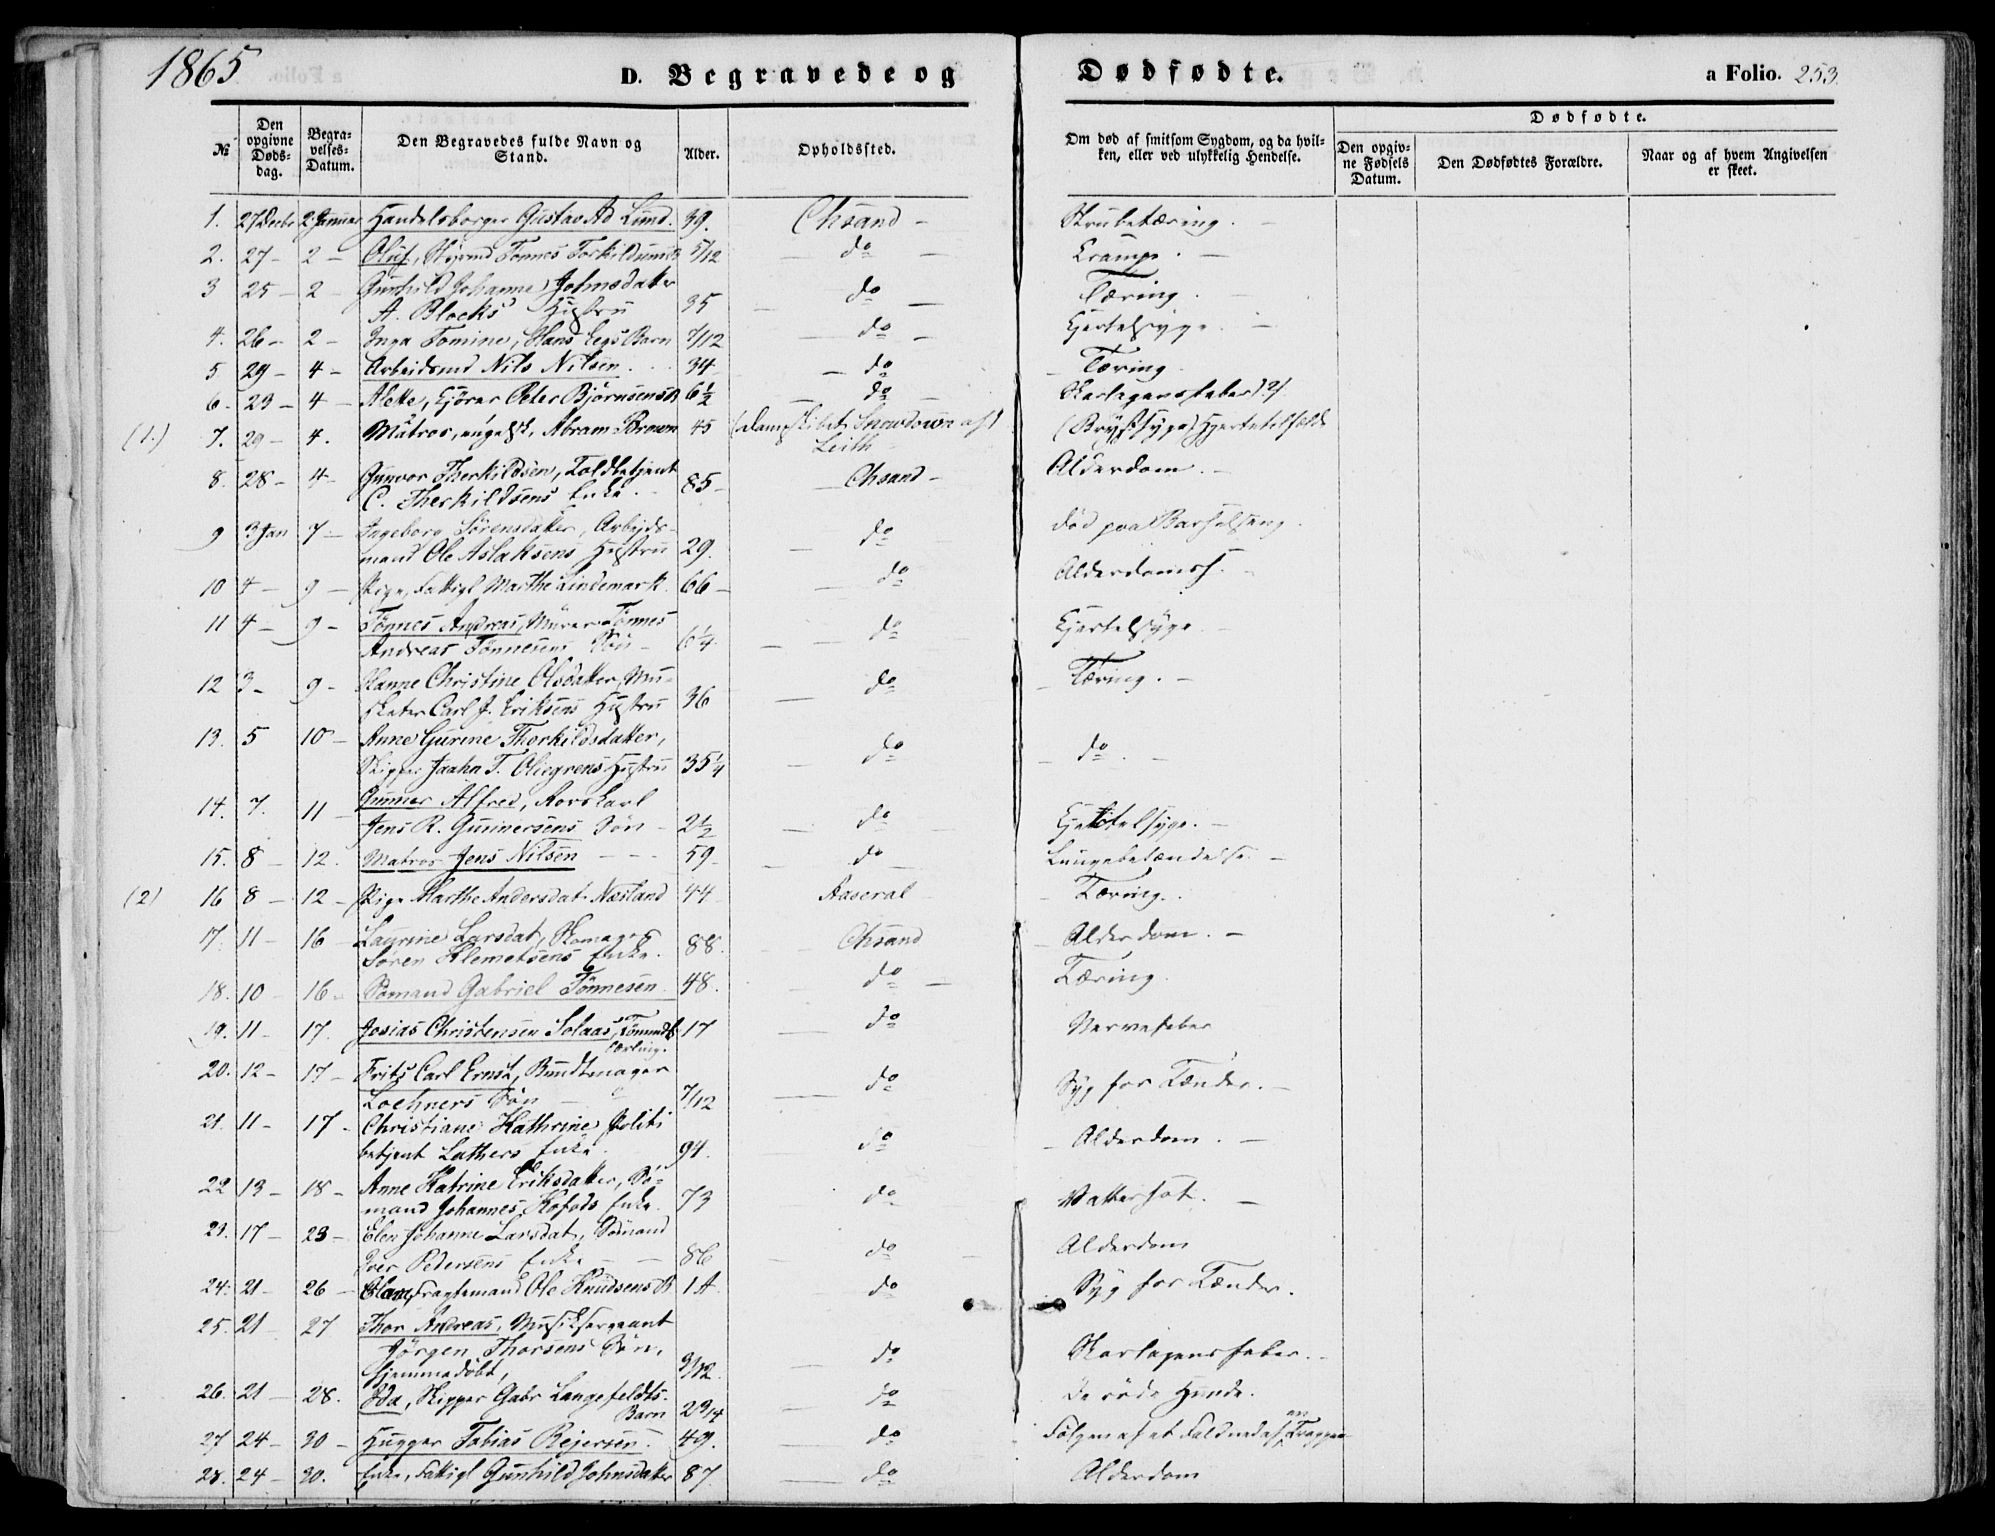 1865
D. Begravede og Dødfødte.
a Folio. 253.
№
Den opgivne Døds-dag.
Begra-velses-Datum.
Den Begravedes fulde Navn og Stand.
Alder.
Opholdssted.
Om død af smitsom Sygdom, og da hvil-ken, eller ved ulykkelig Hendelse.
Dødfødte.
Den opgiv-ne Fødsels Datum.
Den Dødfødtes Forældre.
Naar og af hvem Angivelsen er skeet.
1. 27 Decbr 2 Januar Handelsborger Gustav Ad Lund. 39. Chsand - Strubetæring. -
2. 27 - 2 - Oluf, Tønnes Torkildsens 5/12 do Krampe. -
3 25 - 2 - Gunhild Johanne Johnsdatter
A. Blocks Hustru 35 do Tæring. -
4. 26 - 2 - Inga Tomine, Hans Legs Barn 7/12 do Kjertelsyge. -
5 29 - 4 - Arbeidsmd Nils Nilsen. 34 do Tæring
6. 23 - 4 - Alette, Peter Bjørnsens B 6 1/2 do Skarlagensfeber
(1.) 7. 29 - 4. Matros, engelsk, Abram Brown 45 (Dampskibet Snowdown af) (Brystsyge) Hjertetilfælde
Leith
8. 28 - 4 - Gunvor Therkildsen, Toldbetjent
C. Therkildsens Enke. 85 - Chsand - Alderdom. -
9 3 Jan 7 - Ingeborg Sørensdatter, Arbeids-
mand Ole Aslaksens Hustru 29. do død paa Barselseng.
10 4 - 9 - Pige, Fattigl Marthe Lindemark. 66 - do Alderdomss. -
11 4 - 9 - Tønnes Andreas, Murer Tønnes
Andreas Tønnesens Søn - 6 1/4. do Kjertelsyge
12 3 - 9 - Hanne Christine Olsdatter, Mu-
sketer Carl J. Eriksens Hustru 36 do Tæring. -
13. 5 10 - Anne Gurine Therkildsdatter,
Skipper Jaahn T. Oliegrens Hustru 35 1/4 do do. -
14. 7. 11 - Gunner Alfred, Rorskarl
Jens R. Gunnersens Søn - 2 1/2 do Kjertelsyge. -
15. 8 - 12. Matros Jens Nilsen 59. do Lungebetændelse. -
(2) 16 8 - 12 - Pige Marthe Andersdat. Næsland 44 Aaseral Tæring.
17. 11 - 16 - Laurine Larsdat, Skomager
Søren Klemetsens Enke. 88. Chsand Alderdom. -
18. 10 - 16 - Sømand Gabriel Tønnesen. 48. do Tæring
19. 11 - 17. Josias Christensen Solaas, Tømmermds 17 do Nervefeber
Lærling.
20. 12 - 17 - Frits Carl Ernst, Bundtmager
Lochners Søn 7/12 do Syg for Tænder. -
21. 11 - 17 - Christiane Kathrine Politi
betjent Lathers Enke. 94. do Alderdom. -
22 13 - 18 - Anne Katrine Eriksdatter, Sø-
mand Johannes Kofods Enke. 73 do Vattersot. -
23. 17 - 23 - Elen Johanne Larsdat, Sømand
Iver Pedersens Enke 86 do Alderdom
24. 21 - 26 - Fragtemand Ole Knudsens B 1 A. do Syg for Tænder.
25. 21 27 Thor Andreas, Musiksergeant
Jørgen Thorsens Søn,
hjemmedøbt, 9/12. do Skarlagensfeber.
26. 21 - 28. Ida, Skipper Gabr Langefeldts.
Barn 2 3/4 do De røde Hunde.
27 24 - 30 - Hugger Tobias Rejersen. 49. do Følgen af et Fald ned af en Trappe
28. 24 - 30. Enke, Fattigl Gunhild Johnsdatter 87 do Alderdom